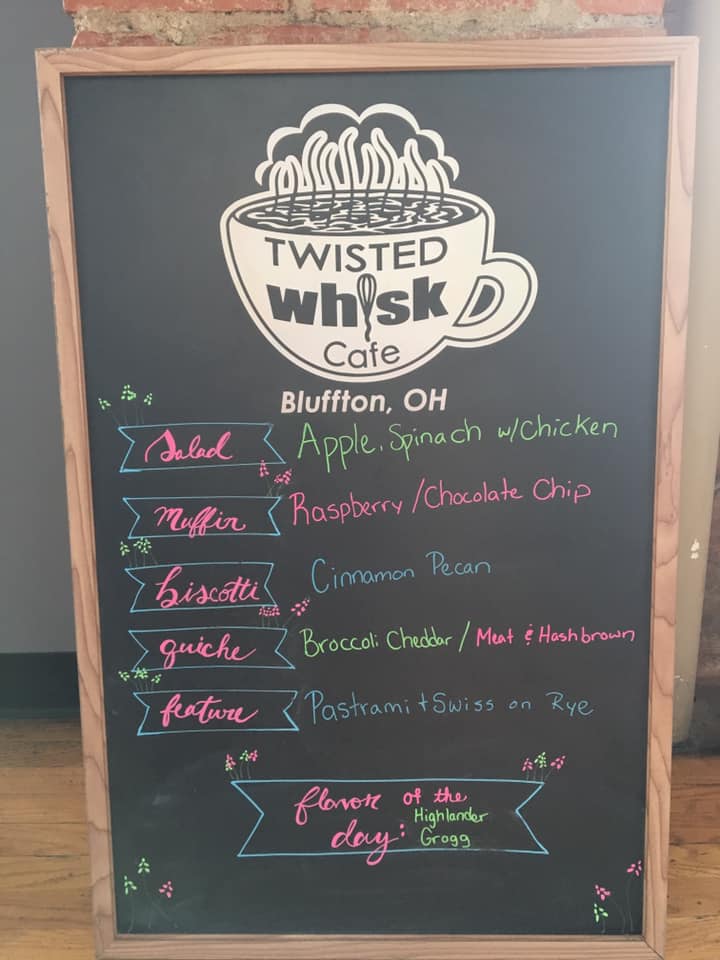 TWISTED
whisk
Cafe
Bluffton, OH
Salad Apple, Spinach w/Chicken
Muffin Raspberry/Chocolate Chip
biscotti Cinnamon Pecan
quiche Broccoli Cheddar/Meat & Hashbrown
feature Pastrami + Swiss on Rye
flavor of the
day: Highlander
Grogg